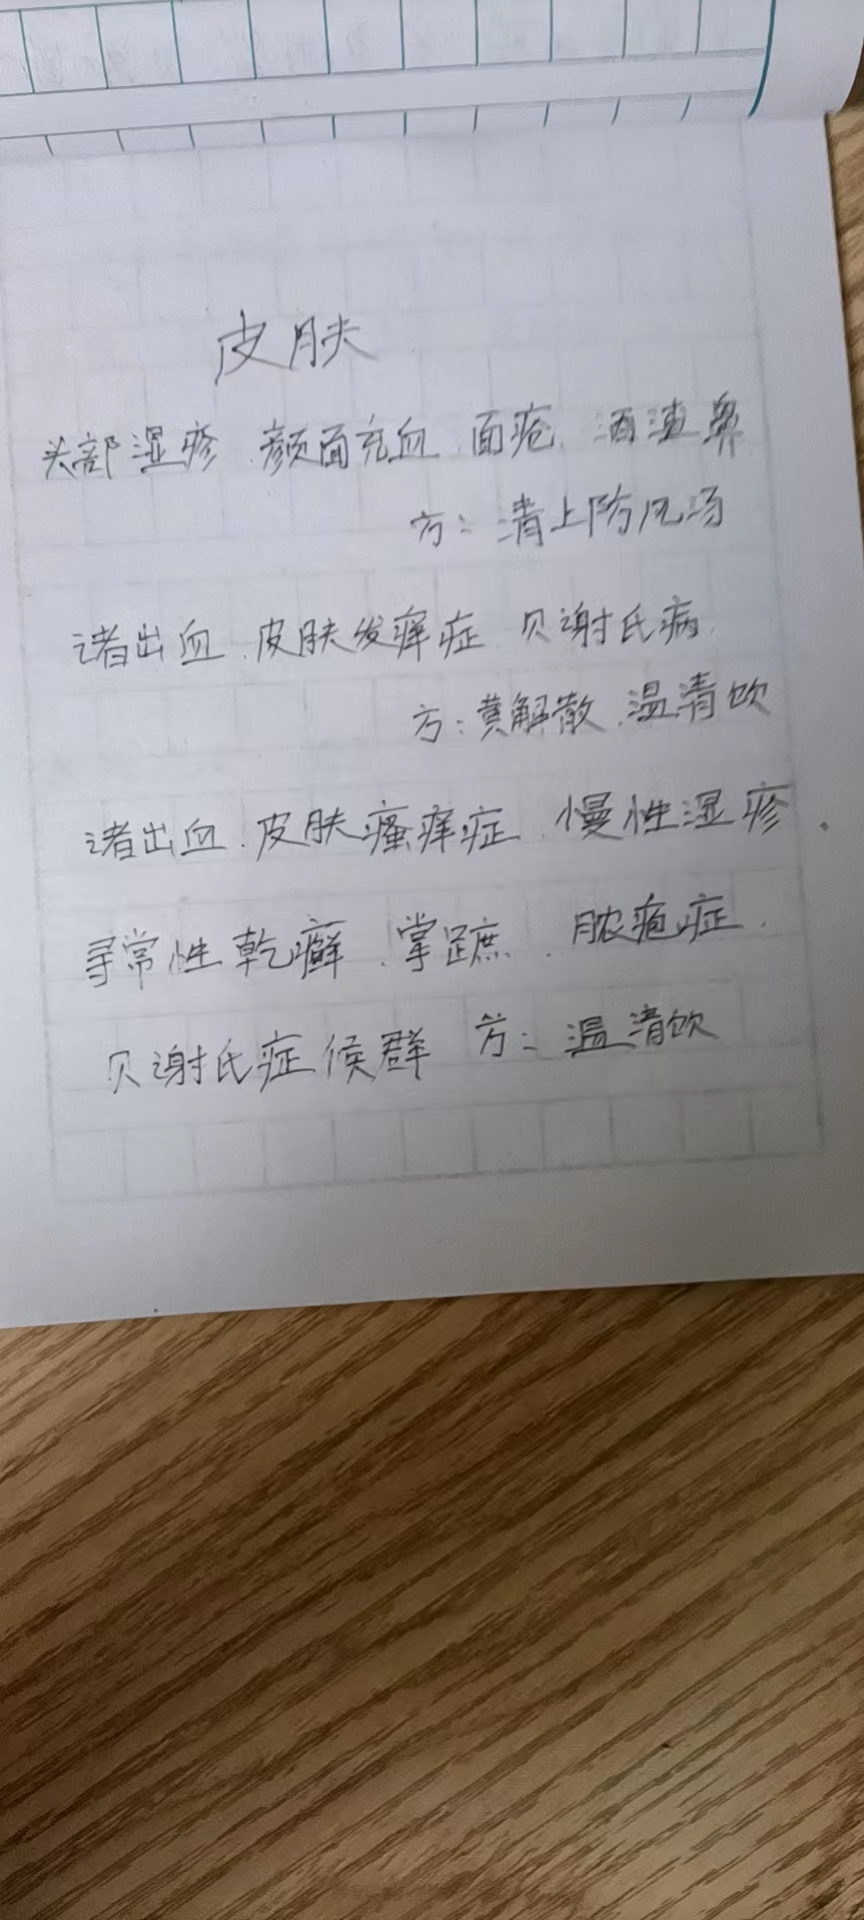 皮肤
头部湿疹、颜面充血、面疮、酒渣鼻
方：清上防风汤
诸出血、皮肤发痒症、贝谢氏病、
方：黄解散、温清饮
诸出血、皮肤瘙痒症、慢性湿疹、
寻常性乾癣、掌蹠、脓疱症、
贝谢氏症候群 方：温清饮